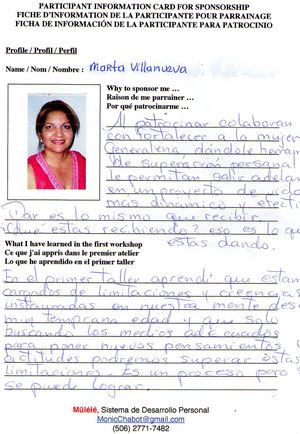 PARTICIPANT INFORMATION CARD FOR SPONSORSHIP
FICHE D'INFORMATION DE LA PARTICIPANTE POUR PARRAINAGE
FICHA DE INFORMACIÓN DE LA PARTICIPANTE PARA PATROCINIO
Profile / Profil / Perfil
Name / Nom / Nombre : Marta Villanueva
Why to sponsor me …
Raison de me parrainer …
Por qué patrocinarme …
Al patrocinar colaboran
con fortalecer a la mujer
Generaleña, dándole herram
de superación personal
le permitan salir adelan
en un proyecto de vida
mas dinámico y efecti
Dar es lo mismo que recibir.
Que estas recibiendo? eso es lo q
estas dando.
What I have learned in the first workshop
Ce que j'ai appris dans le premier atelier
Lo que he aprendido en el primer taller
En el primer taller aprendí que estam
cargados de limitaciones y creencias
instauradas en nuestra mente des
muy temprana edad y que solo
buscando los medios adecuados
para poner nuevos pensamientos y
actitudes podremos superar estas
limitaciones. Es un proceso pero s
se puede lograr.
Mülélé, Sistema de Desarrollo Personal
MonicChabot@gmail.com
(506) 2771-7482